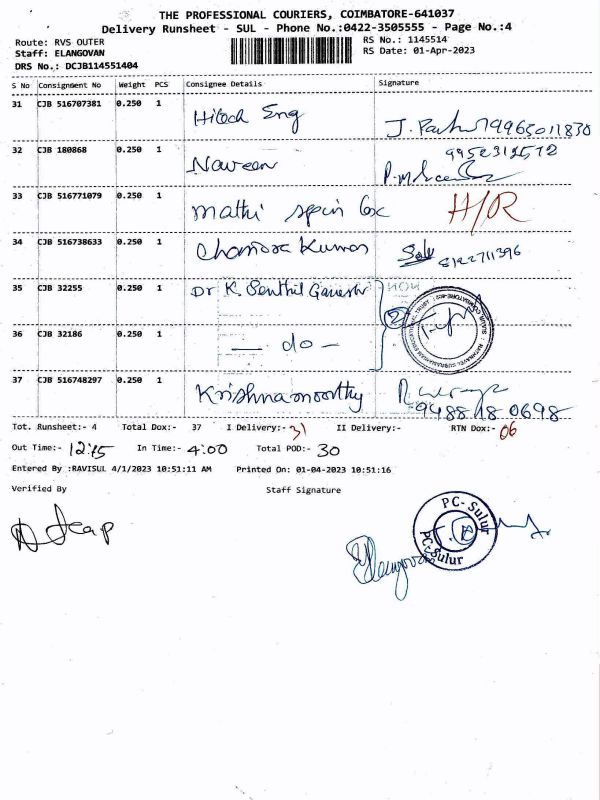 THE PROFESSIONAL COURIERS, COIMBATORE-641037
Delivery Runsheet - SUL - Phone No.:0422-3505555 - Page No.:4
Route: RVS OUTER
Staff: ELANGOVAN
DRS No.: DCJB114551404
RS No.: 1145514
RS Date: 01-Apr-2023
S No Consignment No Weight PCS Consignee Details Signature
31 CJB 516707381 0.250 1 Hitech Eng
32 CJB 180868 0.250 1 Naveen
33 CJB 516771079 0.250 1 mathi spin tex H/R
34 CJB 516738633 0.250 1 Chandra Kumar 8122711396
35 CJB 32255 0.250 1 Dr K. Senthil Ganesh
36 CJB 32186 0.250 1 — do — 2
37 CJB 516748297 0.250 1 Krishnamoorthy 9488 18 0698
Tot. Runsheet:- 4 Total Dox:- 37 I Delivery:- 31 II Delivery:- RTN Dox:- 06
Out Time:- 12:15 In Time:- 4:00 Total POD:- 30
Entered By :RAVISUL 4/1/2023 10:51:11 AM Printed On: 01-04-2023 10:51:16
Verified By Staff Signature
PC-Sulur
Elangovan
PC-Sulur